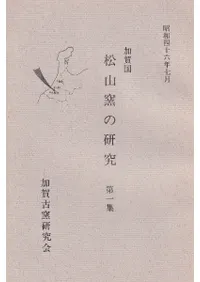 昭和四十六年七月
加賀国
松山窯の研究
第一集
加賀古窯研究会